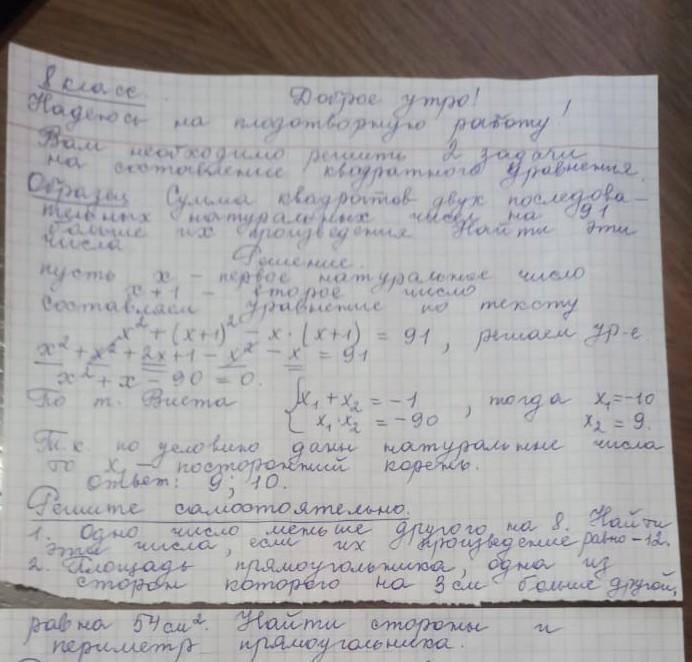 8 класс
Доброе утро!
Надеюсь на плодотворную работу!
Вам необходимо решить 2 задачи
на составление квадратного уравнения.
Образец Сумма квадратов двух последова-
тельных натуральных чисел на 91
больше их произведения Найти эти
числа
Решение.
пусть x – первое натуральное число
x+1 – второе число
составляем уравнение по тексту
x² + (x+1)² – x·(x+1) = 91, решаем ур-е
x² + x² + 2x + 1 – x² – x = 91
x² + x – 90 = 0.
По т. Виета { x₁ + x₂ = –1, тогда x₁ = –10
x₁·x₂ = –90 x₂ = 9.
Т.к. по условию даны натуральные числа
то x₁ – посторонний корень.
Ответ: 9; 10.
Решите самостоятельно.
1. Одно число меньше другого на 8. Найти
эти числа, если их произведение равно –12.
2. Площадь прямоугольника, одна из
сторон которого на 3 см больше другой,
равна 54 см². Найти стороны и
периметр прямоугольника.